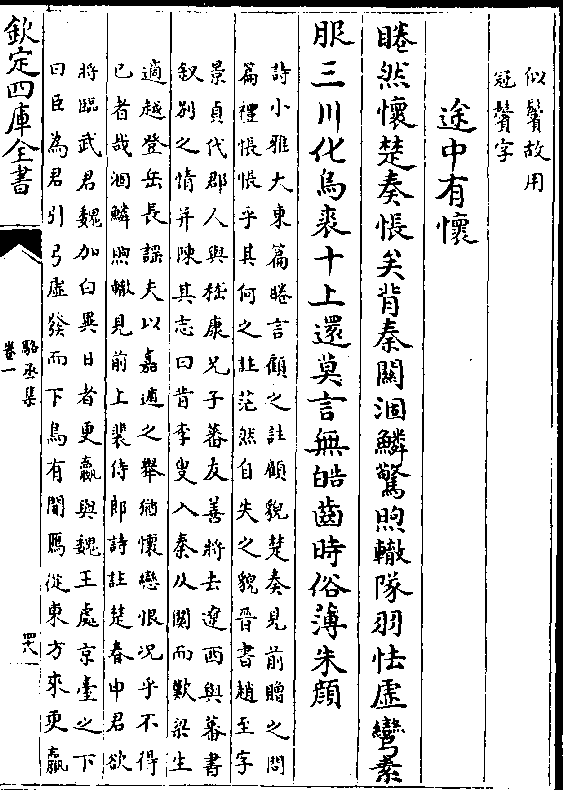 似鬢故用
冠鬢字
途中有懷
睠然懷楚奏悵矣背秦關涸鱗驚煦轍墜羽怯虛彎素
服三川化烏裘十上還莫言無皓齒時俗薄朱顔
詩小雅大東篇睠言顧之註顧貌楚奏見前贈之問
篇禮悵悵乎其何之註茫然自失之貌晉書趙至字
景貞代郡人與嵇康兄子蕃友善將去遼西與蕃書
叙别之情并陳其志曰昔李叟入秦及關而歎梁生
適越登岳長謡夫以嘉遁之舉猶懷戀恨况乎不得
已者哉涸鱗煦轍見前上裴侍郎詩註楚春申君欲
將臨武君魏加曰異日者更羸與魏王處京臺之下
曰臣為君引弓虛發而下鳥有間鴈從東方來更羸
欽定四庫全書
駱丞集
卷一